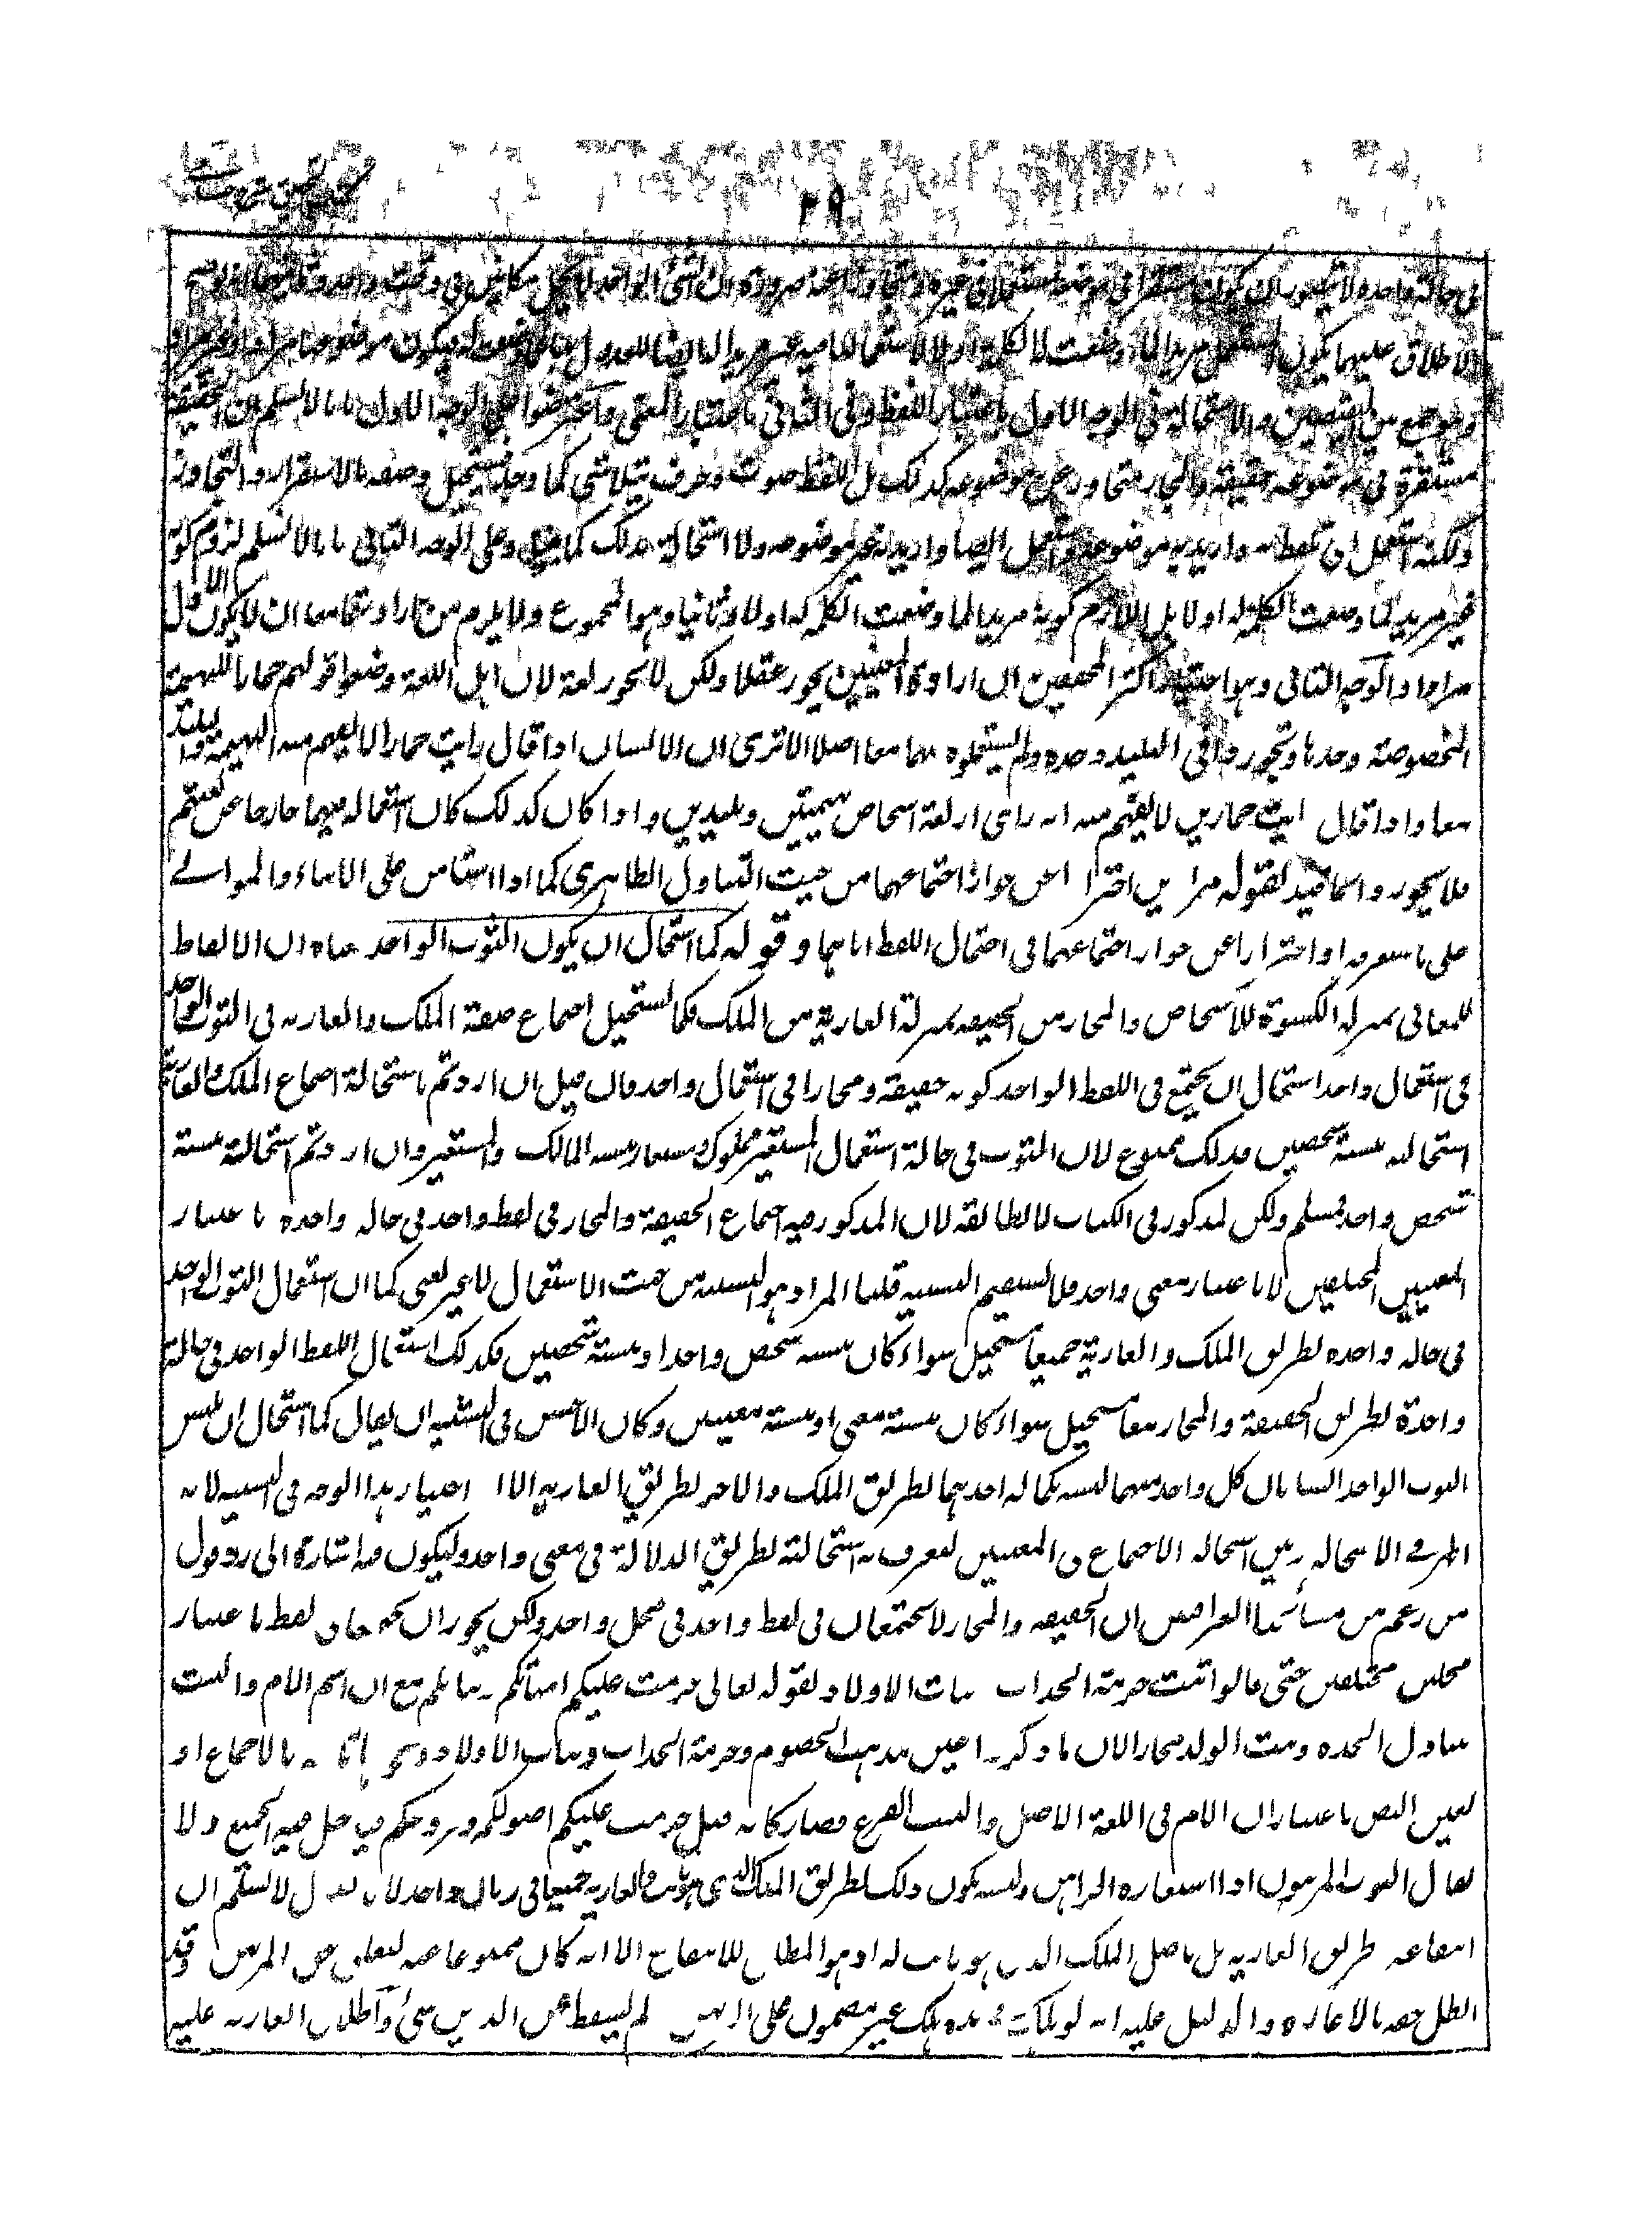 ٢٩
في حالة واحدة ولا يتصور ان يكون مستقرا في موضعه مستعملا في غيره ومتجاوزا عنه ضرورة ان الشئ الواحد لا يحل مكانين في وقت واحد
الاطلاق عليهما يكون المستعمل مريدا لما وضعت له الكلمة اولا لاستعمالها فيه غير مريد له ايضا للعدول بها عما وضعت له فيكون موضوعها مرادا وغير مراد
وهو جمع بين النقيضين والاستحالة في الوجه الاول باعتبار اللفظ وفي الثاني باعتبار المعنى واعترضوا على الوجه الاول بانا لا نسلم ان الحقيقة
مستقرة في موضوعه حقيقة والمجاز متجاوز عن موضوعه كذلك بل اللفظ صوت وحرف يتلاشى كما وجد فيستحيل وصفه بالاستقرار والتجاوز
ولكنه استعمل اي تلفظ به واريد به موضوعه واستعمل ايضا واريد به غير موضوعه ولا استحالة في ذلك كما قيل وعلى الوجه الثاني بانا لا نسلم لزوم كونه
غير مريد لما وضعت الكلمة له اولا بل اللازم كونه مريدا لما وضعت الكلمة له اولا وثانيا وهو المجموع ولا يلزم من ارادتهما معا ان لا يكون الاول
مرادا والوجه الثاني وهو اختيار اكثر المحققين ان ارادة المعنيين يجوز عقلا ولكن لا يجوز لغة لان اهل اللغة وضعوا قولهم حمارا للبهيمة
المخصوصة وحدها وتجوزوا في البليد وحده ولم يستعملوه فيهما معا اصلا الا ترى ان الانسان اذا قال رايت حمارا لا يفهم منه البهيمة والبليد
معا واذا قال رايت حمارين لا يفهم منه انه راى اربعة اشخاص بهيمتين وبليدين واذا كان كذلك كان استعماله فيهما خارجا عن لغتهم
فلا يجوز وانما قيد بقوله مرادين احترازا عن جواز اجتماعهما من حيث التناول الظاهري كما اذا استامن على الابناء والموالي
على ما سنعرفه او احترازا عن جواز اجتماعهما في احتمال اللفظ اياهما وقوله كما استحال ان يكون الثوب الواحد معناه ان الالفاظ
للمعاني بمنزلة الكسوة للاشخاص والمجاز من الحقيقة بمنزلة العارية من الملك فكما يستحيل اجتماع صفة الملك والعارية في الثوب الواحد
في استعمال واحد استحال ان يجتمع في اللفظ الواحد كونه حقيقة ومجازا في استعمال واحد فان قيل ان اردتم باستحالة اجتماع الملك والعارية
استحالته بنسبة شخصين فذلك ممنوع لان الثوب في حالة استعمال المستعير مملوك ومستعار بنسبة المالك والمستعير وان اردتم استحالته بنسبة
شخص واحد فمسلم ولكن المذكور في الكتاب لا يطابقه لان المذكور فيه اجتماع الحقيقة والمجاز في لفظ واحد في حالة واحدة باعتبار
المعنيين المختلفين لا باعتبار معنى واحد فلا يستقيم التشبيه قلنا المراد هو التشبيه من حيث الاستعمال لا غير يعني كما ان استعمال الثوب الواحد
في حالة واحدة بطريق الملك والعارية جميعا مستحيل سواء كان بنسبة شخص واحد او بنسبة شخصين فكذلك استعمال اللفظ الواحد في حالة
واحدة بطريق الحقيقة والمجاز معا مستحيل سواء كان بنسبة معنى او بنسبة معنيين وكان الاحسن في التشبيه ان يقال كما استحال ان يلبس
الثوب الواحد لابسان كل واحد منهما يلبسه بكماله احدهما بطريق الملك والاخر بطريق العارية الا ان اختيار هذا الوجه في التشبيه لانه
اظهر في الاستحالة وبين استحالة الاجتماع في المعنيين ليعرف به استحالته بطريق الدلالة في معنى واحد وليكون فيه اشارة الى رد قول
من زعم من مشائخنا العراقيين ان الحقيقة والمجاز لا يجتمعان في لفظ واحد في محل واحد ولكن يجوز ان يجتمعا في لفظ باعتبار
محلين مختلفين حتى قالوا تثبت حرمة الجدات وبنات الاولاد بقوله تعالى حرمت عليكم امهاتكم وبناتكم مع ان اسم الام والبنت
يتناول الجدة وبنت الولد مجازا لان ما ذكر عين مذهب الخصوم وحرمة الجدات وبنات الاولاد بالاجماع او
بعين النص باعتبار ان الام في اللغة الاصل والبنت الفرع فصار كانه قيل حرمت عليكم اصولكم وفروعكم فيدخل فيه الجميع ولا
يقال الثوب المرهون اذا استعاره الراهن ولبسه يكون ذلك بطريق الملك والعارية جميعا في زمان واحد لانا نقول لا نسلم ان
انتفاعه بطريق العارية بل باصل الملك الذي هو ثابت له اذ هو المطلق للانتفاع الا انه كان ممنوعا عنه لتعلق حق المرتهن وقد
ابطل حقه بالاعارة والدليل عليه انه لو هلكت في يده هلك غير مضمون على المرتهن لم يسقط من الدين شئ واطلاق العارية عليه